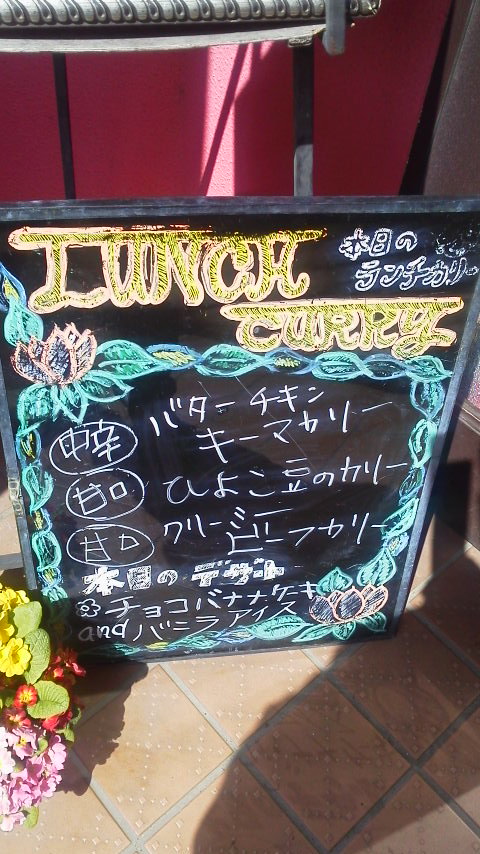 LUNCH
本日の
ランチカリー
CURRY
中辛
バターチキン
キーマカリー
甘口
ひよこ豆のカリー
甘口
クリーミー
ビーフカリー
本日のデザート
チョコバナナケーキ
and バニラアイス